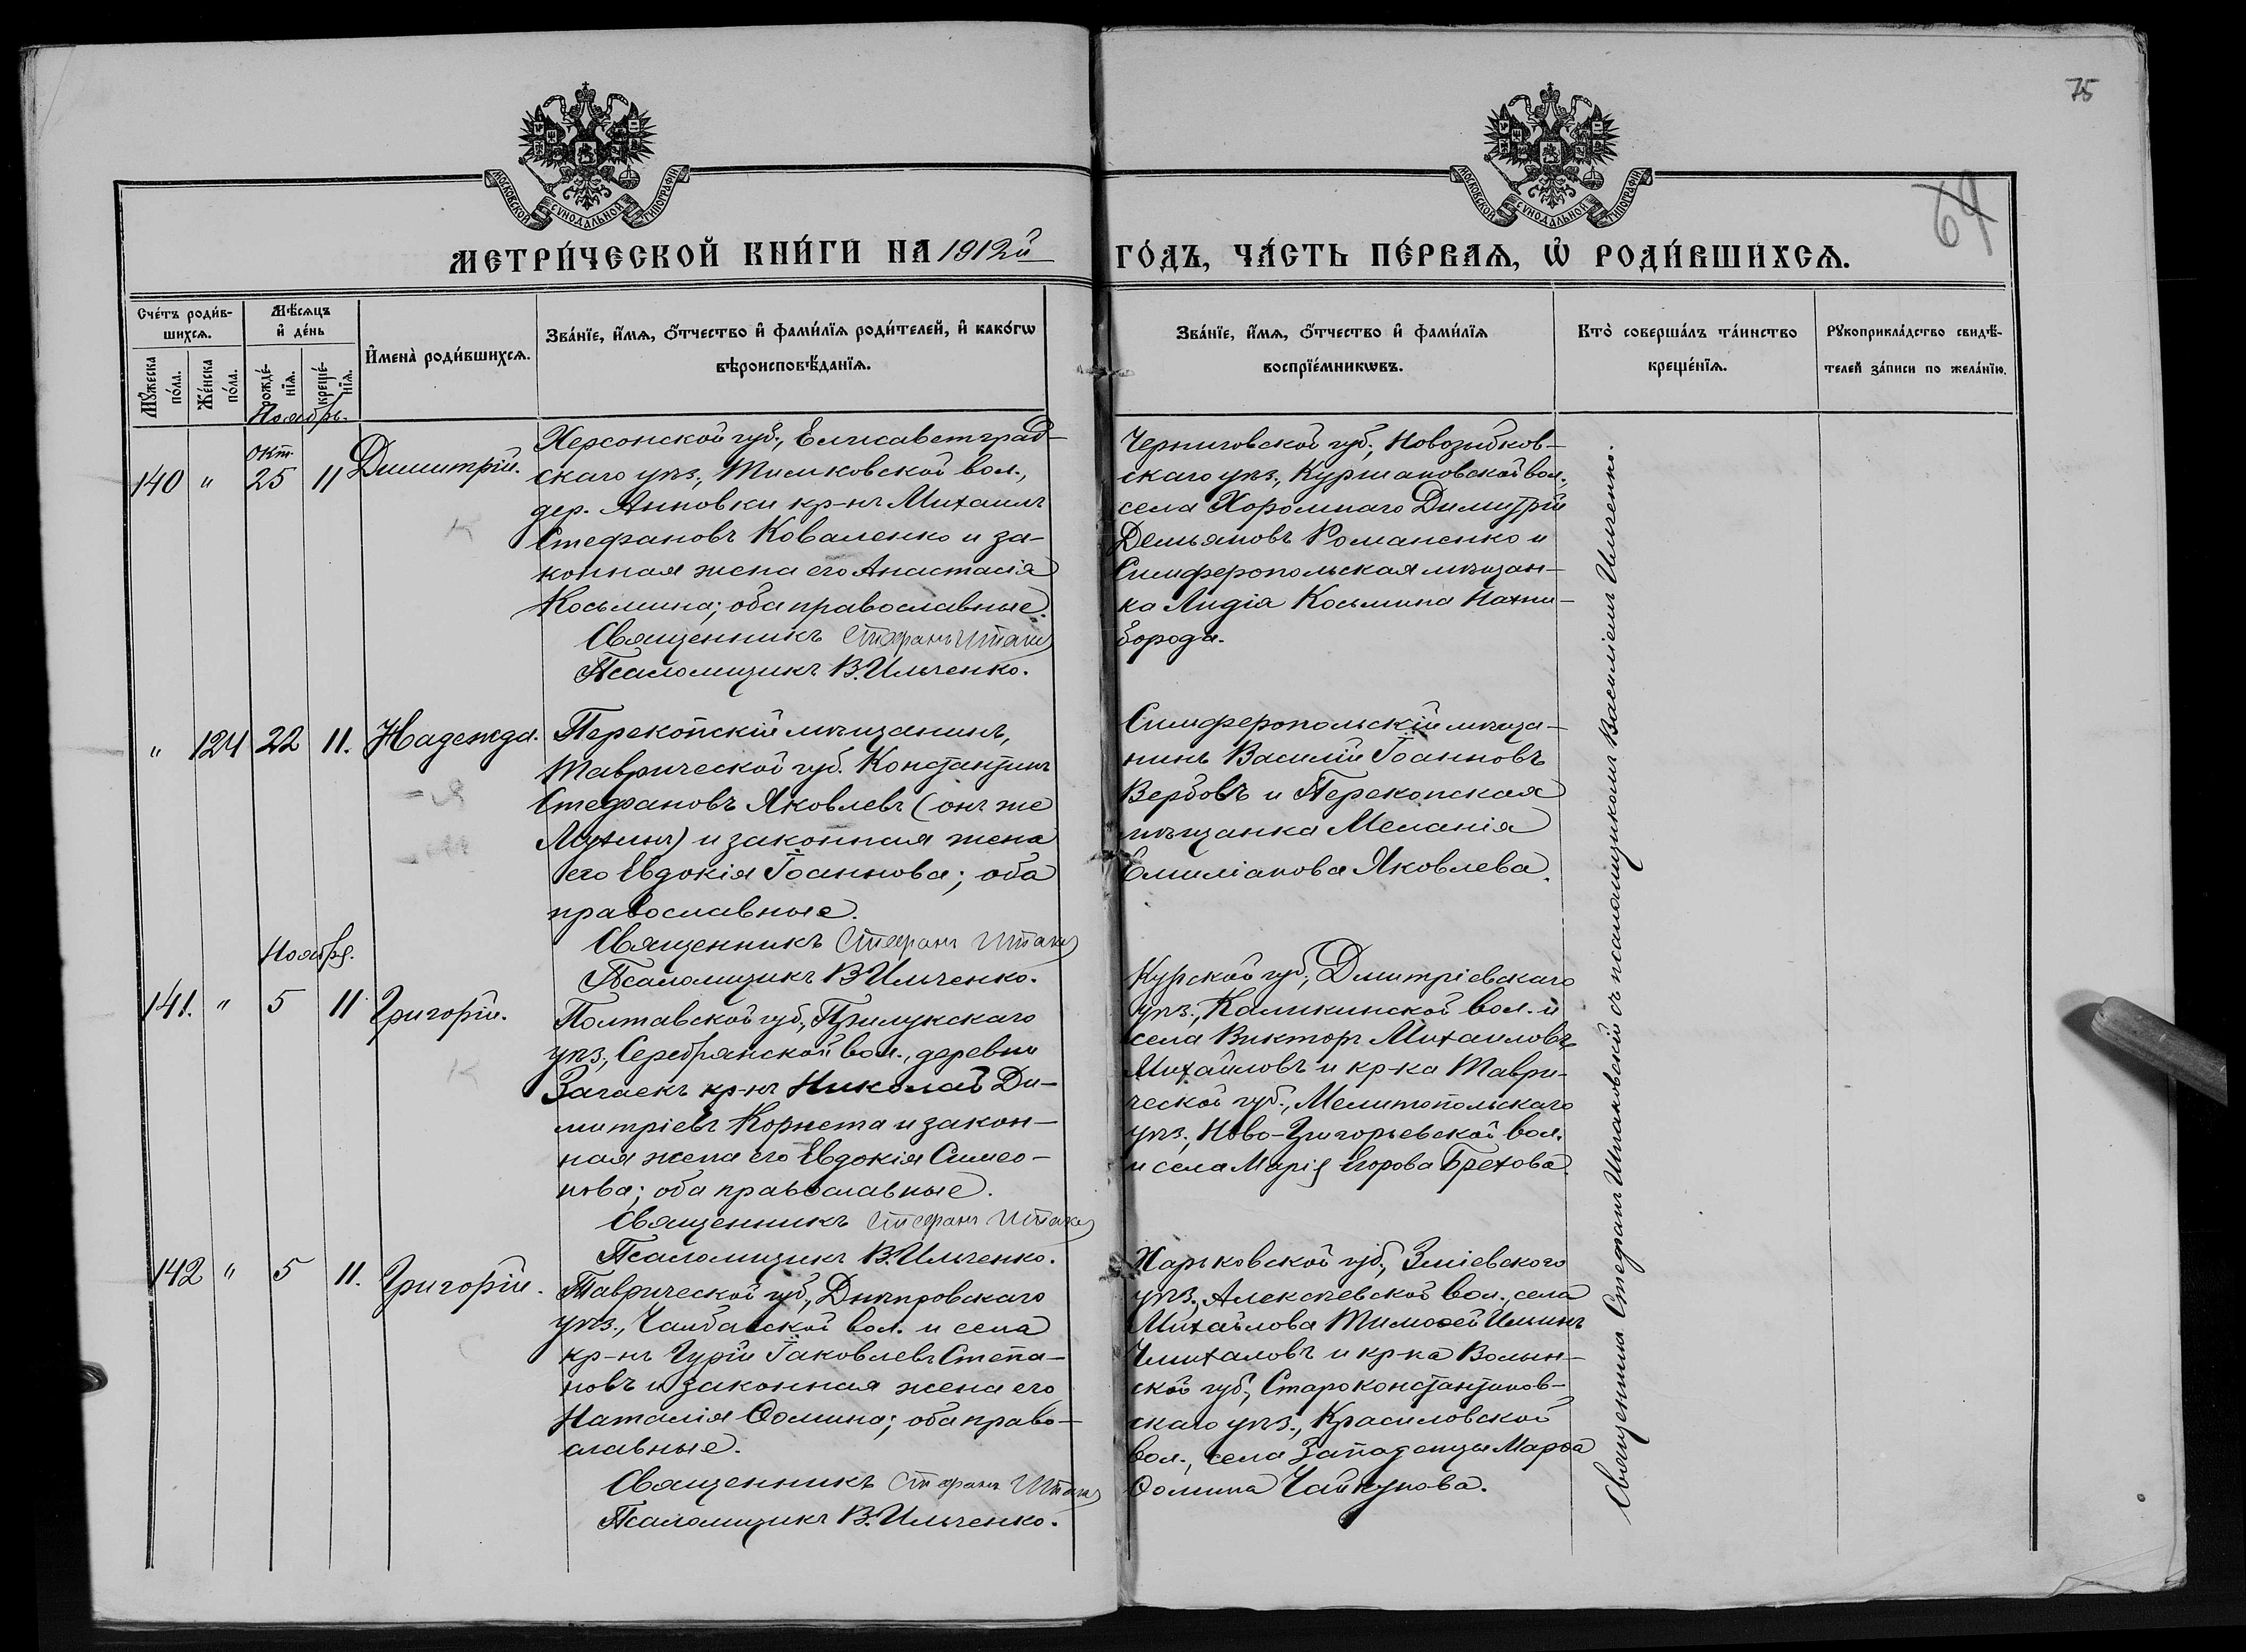 75
64
МОСКОВСКОЙ СѴНОДАЛЬНОЙ ТИПОГРАФІИ
МОСКОВСКОЙ СѴНОДАЛЬНОЙ ТИПОГРАФІИ
МЕТРИ́ЧЕСКОЙ КНИ́ГИ НА 1912й
ГО́ДЪ, ЧА́СТЬ ПЕ́РВАѦ, Ѡ҆ РОДИ́ВШИХСѦ.
Сче́тъ роди́в-
шихсѧ.
Мꙋ́жеска
по́ла.
Же́нска
по́ла.
Мѣ́сѧцъ
и҆ де́нь
рожде́-
нїѧ.
креще́-
нїѧ.
И҆мена̀ роди́вшихсѧ.
Зва́нїе, и҆́мѧ, ѻ҆́тчество и҆ фами́лїѧ роди́телей, и҆ како́гѡ
вѣроисповѣ́данїѧ.
Зва́нїе, и҆́мѧ, ѻ҆́тчество и҆ фами́лїѧ
воспрїе́мникѡвъ.
Кто̀ соверша́лъ та́инство
креще́нїѧ.
Рꙋкоприкла́дство свидѣ́-
телей за́писи по жела́нїю.
Ноябрь.
Окт.
140 " 25 11 Димитрій.
Херсонской губ., Елисаветград-
скаго уѣз.,
вол.,
дер. Анновки кр-нъ Михаилъ
Стефановъ Коваленко и за-
конная жена его Анастасія
Косьмина; оба православные.
Священникъ Стефанъ
Псаломщикъ В. Ильченко.
Черниговской губ., Новозыбков-
скаго уѣз., Куршановской вол.,
села Хоромнаго Димитрій
Демьяновъ Романенко и
Симферопольская мѣщан-
ка Лидія Косьмина
борода.
" 124 22 11. Надежда.
Перекопскій мѣщанинъ,
Таврической губ. Константинъ
Стефановъ Яковлевъ (онъ же
Лухинъ) и законная жена
его Евдокія Іоаннова; оба
православные.
Священникъ Стефанъ
Псаломщикъ В. Ильченко.
Симферопольскій мѣща-
нинъ Василій Іоанновъ
Вербовъ и Перекопская
мѣщанка Меланія
Емиліанова Яковлева.
Ноября.
141. " 5 11 Григорій.
Полтавской губ., Прилукскаго
уѣз., Серебрянской вол., деревни
Загаекъ кр-нъ Николай Ди-
митріевъ Корнета и закон-
ная жена его Евдокія Симео-
нова; оба православные.
Священникъ Стефанъ
Псаломщикъ В. Ильченко.
Курской губ., Дмитріевскаго
уѣз., Каликинской вол. и
села Викторъ Михаиловъ
Михайловъ и кр-ка Таври-
ческой губ., Мелитопольскаго
уѣз., Ново-Григорьевской вол.
и села Марія Егорова Брехова.
142 " 5 11. Григорій.
Таврической губ., Днѣпровскаго
уѣз., Чалбасской вол. и села
кр-нъ Гурій Іаковлевъ Степа-
новъ и законная жена его
Наталія Ѳомина; оба право-
славные.
Священникъ Стефанъ
Псаломщикъ В. Ильченко.
Харьковской губ., Зміевского
уѣз., Алексѣевской вол., села
Михайлова Тимоѳей Ильинъ
Чмихаловъ и кр-ка Волын-
ской губ., Староконстантинов-
скаго уѣз., Красиловской
вол., села Западенцы Марѳа
Ѳомина Чайкунова.
Священникъ Стефанъ Шпаковскій съ псаломщикомъ Василіемъ Ильченко.